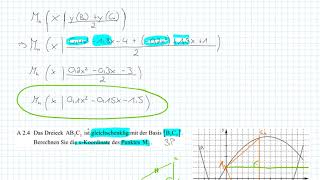 Mₙ ( x | y(Bₙ) + y(Cₙ) / 2 )
x - 4 + ( x + 1
Mₙ ( x | 0,2x² - 0,3x - 3 / 2 )
Mₙ ( x | 0,1x² - 0,15x - 1,5 )
A 2.4 Das Dreieck AB₁C₁ ist gleichschenklig mit der Basis [B₁C₁]
Berechnen Sie die x-Koordinate des Punktes M₁.
3P